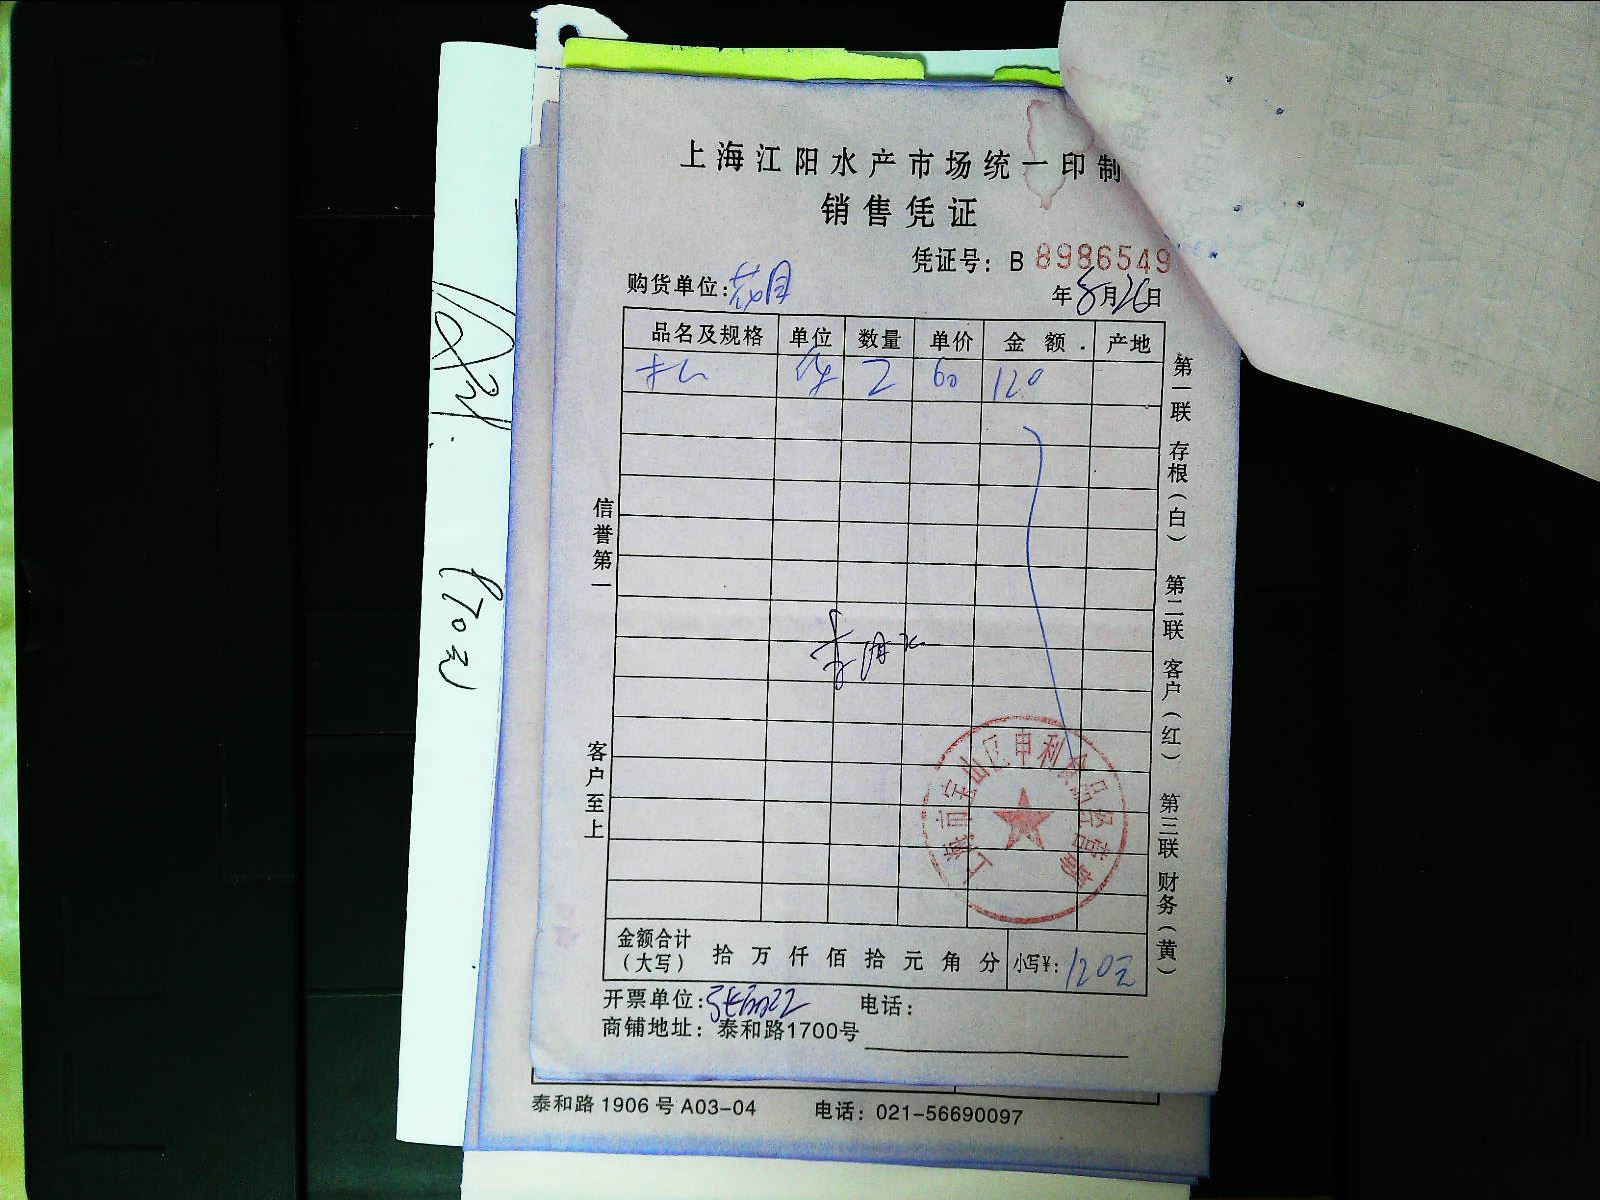 上海江阳水产市场统一印制
销售凭证
凭证号：B 8986549
购货单位：花月
年8月26日
品名及规格 单位 数量 单价 金额 产地
件 2 60 120
信誉第一
客户至上
第一联 存根（白） 第二联 客户（红） 第三联 财务（黄）
上海市宝山区申利食品经营部
金额合计（大写） 拾 万 仟 佰 拾 元 角 分 小写¥：120元
开票单位： 电话：
商铺地址：泰和路1700号
泰和路 1906 号 A03-04 电话：021-56690097
170元